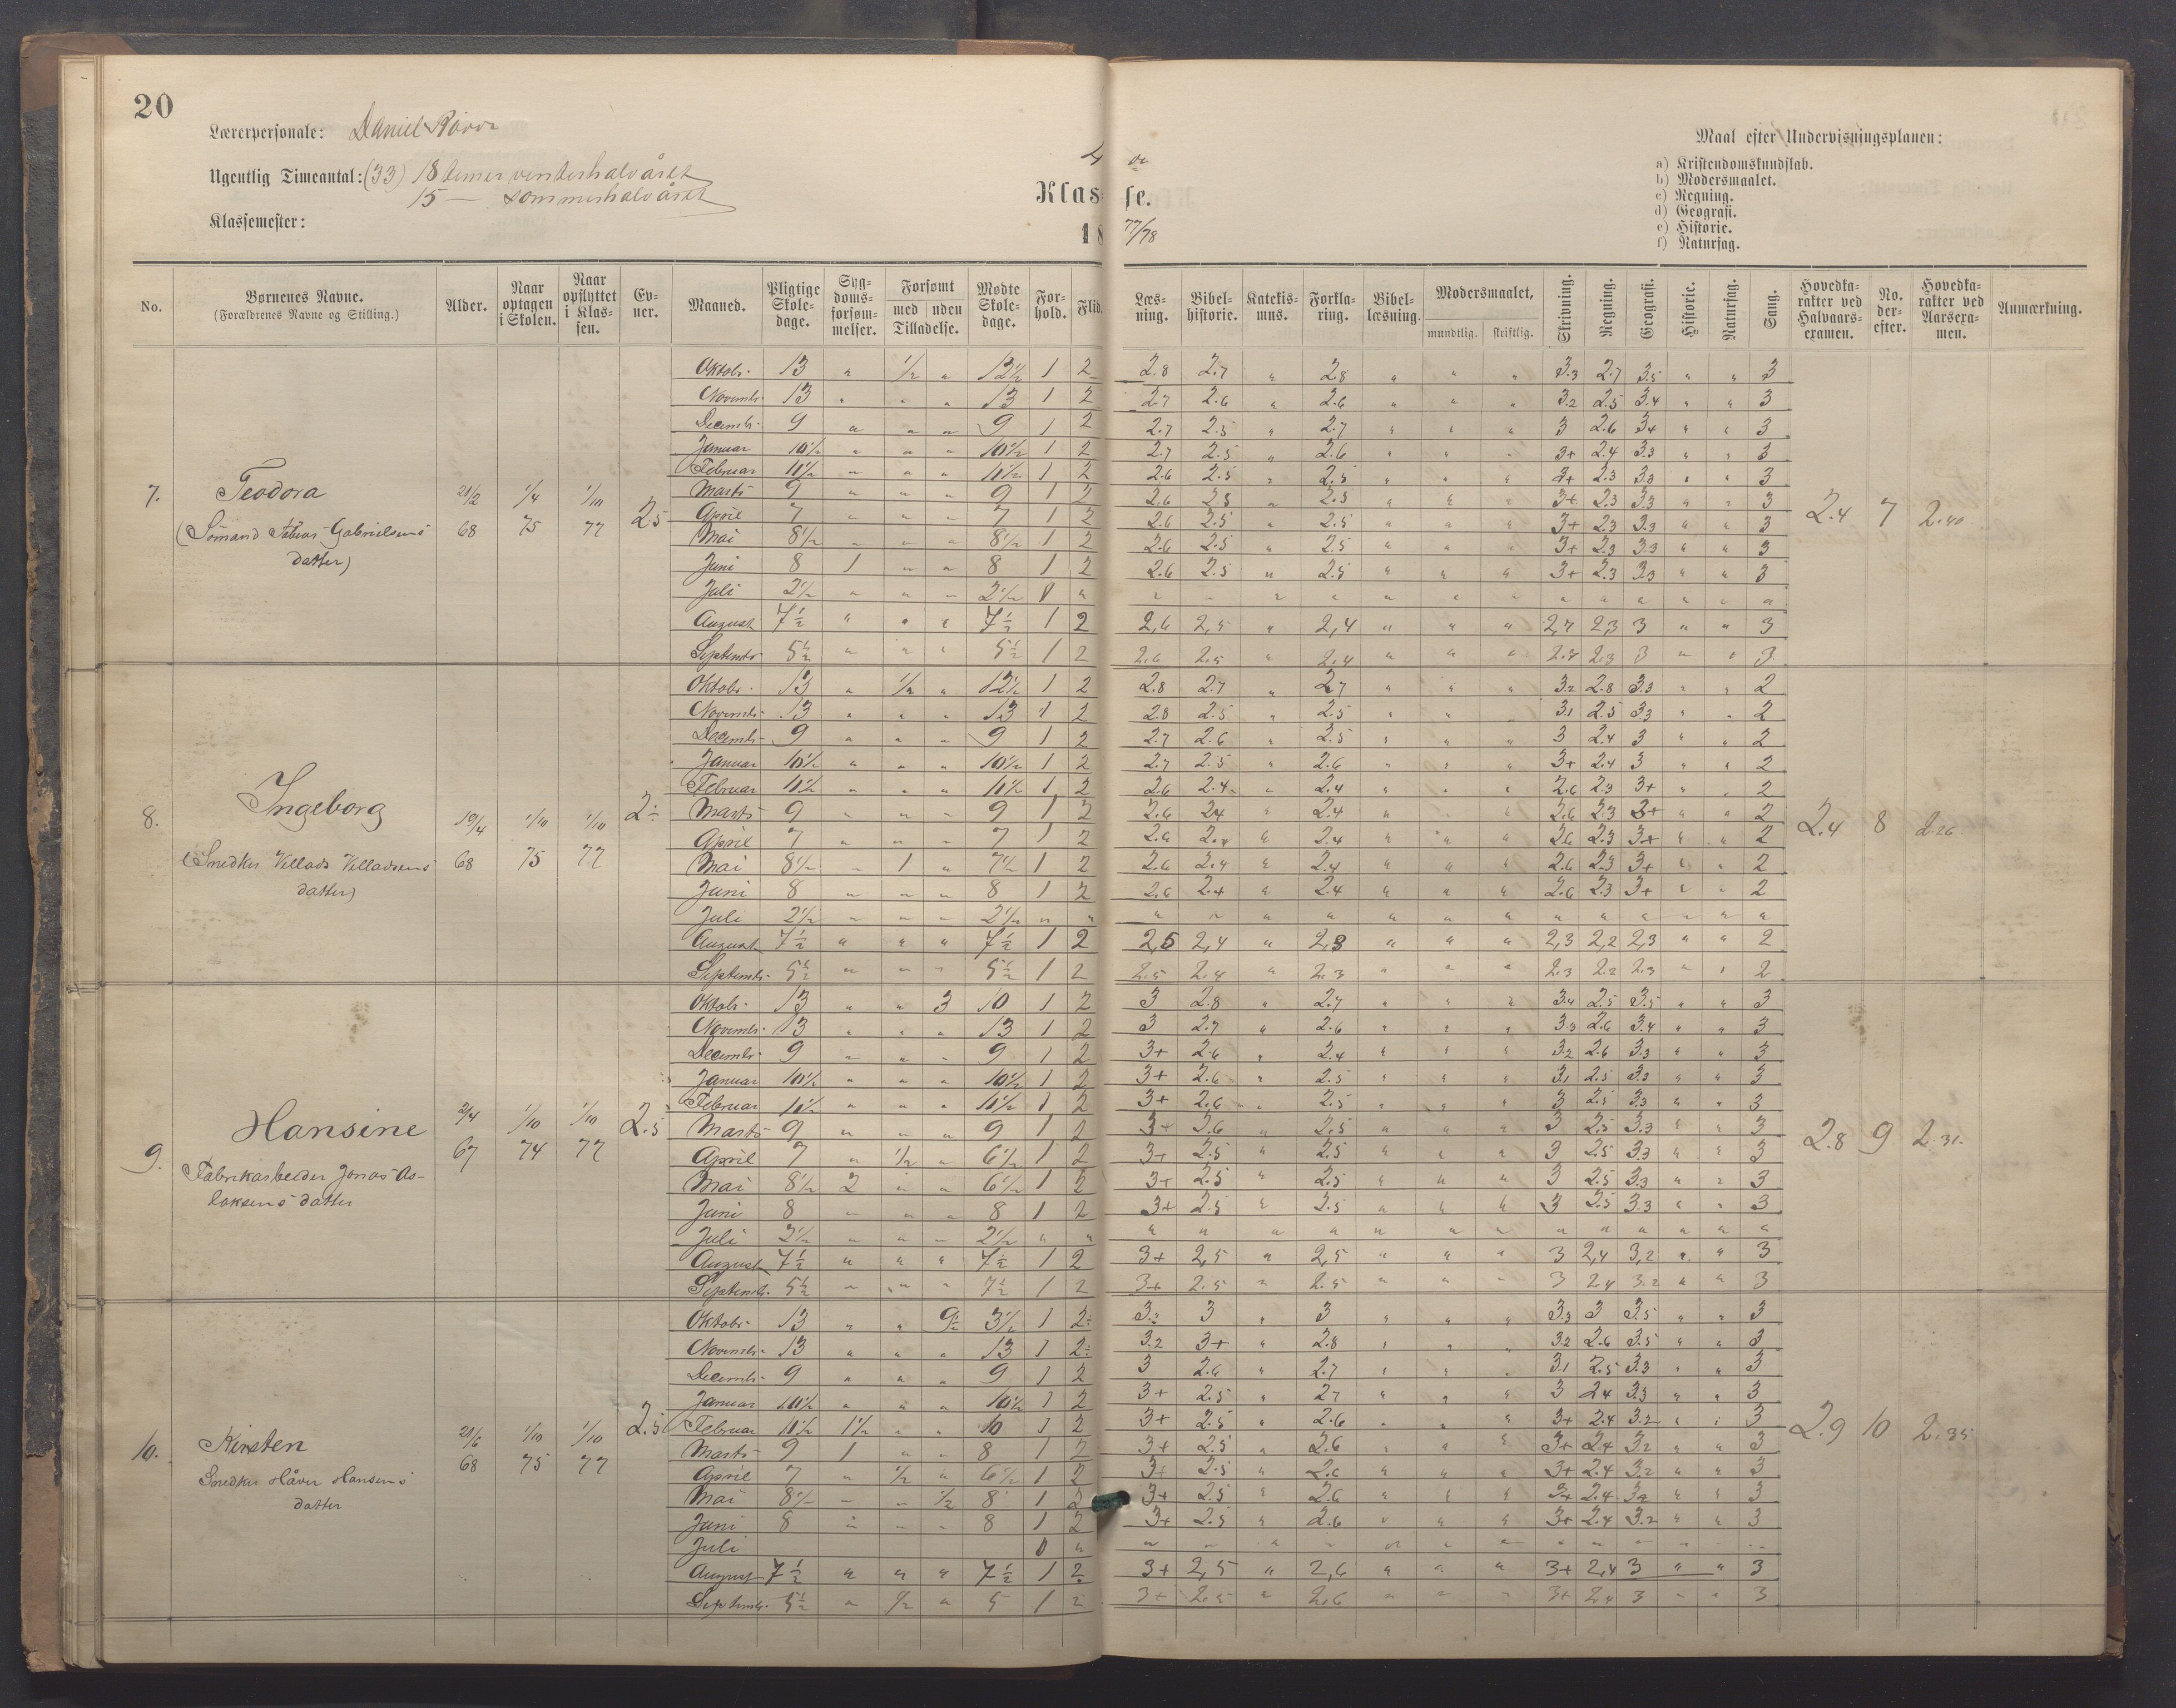 20
Lærerpersonale: Daniel
Ugentlig Timeantal: (33) 18 timer vinterhalvåret
15 — sommerhalvåret
Klassemester:
4 de
Klasse.
1877/78
Maal efter Undervisningsplanen:
a) Kristendomskundskab.
b) Modersmaalet.
c) Regning.
d) Geografi.
e) Historie.
f) Naturfag.
No. Børnenes Navne. (Forældrenes Navne og Stilling.) Alder. Naar optagen i Skolen. Naar opflyttet i Klassen. Evner. Maaned. Pligtige Skoledage. Sygdomsforsømmelser. Forsømt med uden Tilladelse. Mødte Skoledage. Forhold. Flid. Læsning. Bibelhistorie. Katekismus. Forklaring. Bibellæsning. Modersmaalet, mundtlig. skriftlig. Skrivning. Regning. Geografi. Historie. Naturfag. Sang. Hovedkarakter ved Halvaarsexamen. No. derefter. Hovedkarakter ved Aarsexamen. Anmærkning.
7. Teodora
(Sømand Tobias Gabrielsens datter)
21/2 68 1/4 75 1/10 77 2.5
Oktobr. 13 " 1/2 " 12 1/2 1 2 2.8 2.7 " 2.8 " " " 3.3 2.7 3.5 " " 3
Novembr. 13 " " " 13 1 2 2.7 2.6 " 2.6 " " " 3.2 2.5 3.4 " " 3
Decembr. 9 " " " 9 1 2 2.7 2.5 " 2.7 " " " 3 2.6 3.4 " " 3
Januar 10 1/2 " " " 10 1/2 1 2 2.7 2.5 " 2.6 " " " 3+ 2.4 3.3 " " 3
Februar 11 1/2 " " " 11 1/2 1 2 2.6 2.5 " 2.5 " " " 3+ 2.3 3.3 " " 3
Marts 9 " " " 9 1 2 2.6 2.5 " 2.5 " " " 3+ 2.3 3.3 " " 3
April 7 " " " 7 1 2 2.6 2.5 " 2.5 " " " 3+ 2.3 3.3 " " 3
Mai 8 1/2 " " " 8 1/2 1 2 2.6 2.5 " 2.5 " " " 3+ 2.3 3.3 " " 3
Juni 8 1 " " 8 1 2 2.6 2.5 " 2.5 " " " 3+ 2.3 3.3 " " 3
Juli 2 1/2 " " " 2 1/2 " " " " " " " " " " " " " "
August 7 1/2 " " " 7 1/2 1 2 2,6 2,5 " 2,4 " " " 2,7 2,3 3 " " 3
Septembr 5 1/2 " " " 5 1/2 1 2 2.6 2.5 " 2.4 " " " 2.7 2.3 3 " " 3
2.4 7 2.40
8. Ingeborg
(Snedker Vellads Velladsens datter)
19/4 68 1/10 75 1/10 77 2÷
Oktobr. 13 " 1/2 " 12 1/2 1 2 2.8 2.7 " 2.7 " " " 3.2 2.8 3.3 " " 2
Novembr. 13 " " " 13 1 2 2.8 2.5 " 2.5 " " 3.1 2.5 3.3 " " 2
Decembr. 9 " " " 9 1 2 2.7 2.6 " 2.5 " " " 3 2.4 3 " " 2
Januar 10 1/2 " " " 10 1/2 1 2 2.7 2.5 " 2.6 " " " 3+ 2.4 3 " " 2
Februar 11 1/2 " " " 11 1/2 1 2 2.6 2.4 " 2.4 " " " 2.6 2.3 3+ " " 2
Marts 9 " " " 9 1 2 2.6 2.4 " 2.4 " " " 2.6 2.3 3+ " " 2
April 7 " " " 7 1 2 2.6 2.4 " 2.4 " " " 2.6 2.3 3+ " " 2
Mai 8 1/2 " 1 " 7 1/2 1 2 2.6 2.4 " 2.4 " " " 2.6 2.3 3+ " " 2
Juni 8 " " " 8 1 2 2.6 2.4 " 2.4 " " " 2.6 2.3 3+ " " 2
Juli 2 1/2 " " " 2 1/2 " " " " " " " " " " " " " " "
August 7 1/2 " " " 7 1/2 1 2 2,5 2,4 " 2,3 " " " 2,3 2,2 2,3 " " 2
Septembr. 5 1/2 " " " 5 1/2 1 2 2.5 2.4 " 2.3 " " " 2.3 2.2 2.3 " " 2
2.4 8 2.26
9. Hansine
Fabrikarbeider Jonas Aslaksens datter
2/4 67 1/10 74 1/10 77 2.5
Oktobr. 13 " " 3 10 1 2 3 2.8 " 2.7 " " " 3.4 2.5 3.5 " " 3
Novembr. 13 " " " 13 1 2 3 2.7 " 2.6 " " " 3.3 2.6 3.4 " " 3
Decembr. 9 " " " 9 1 2 3+ 2.6 " 2.4 " " " 3.2 2.6 3.3 " " 3
Januar 10 1/2 " " " 10 1/2 1 2 3+ 2.6 " 2.5 " " " 3.1 2.5 3.3 " " 3
Februar 11 1/2 " " " 11 1/2 1 2 3+ 2.6 " 2.5 " " " 3 2.5 3.3 " " 3
Marts 9 " " " 9 1 2 3+ 2.6 " 2.5 " " " 3 2.5 3.3 " " 3
April 7 " 1/2 " 6 1/2 1 2 3+ 2.5 " 2.5 " " " 3 2.5 3.3 " " 3
Mai 8 1/2 2 " " 6 1/2 1 2 3+ 2.5 " 2.5 " " " 3 2.5 3.3 " " 3
Juni 8 " " " 8 1 2 3+ 2.5 " 2.5 " " " 3 2.5 3.3 " " 3
Juli 2 1/2 " " " 2 1/2 " " " " " " " " " " " " " " "
August 7 1/2 " " " 7 1/2 1 2 3+ 2,5 " 2,5 " " " 3 2,4 3,2 " " 3
Septembr. 5 1/2 " " " 7 1/2 1 2 3+ 2.5 " 2.5 " " " 3 2.4 3.2 " " 3
2.8 9 2.31.
10. Kirsten
Snedker Håver Hansens datter
21/6 68 1/10 75 1/10 77 2.5
Oktobr. 13 " " 9 1/2 3 1/2 1 2÷ 3.2 3 " 3 " " " 3.3 3 3.5 " " 3
Novembr. 13 " " " 13 1 2÷ 3.2 3+ " 2.8 " " " 3.2 2.6 3.5 " " 3
Decembr. 9 " " " 9 1 2 3 2.6 " 2.7 " " " 3.1 2.5 3.3 " " 3
Januar 10 1/2 " " " 10 1/2 1 2 3+ 2.5 " 2.7 " " " 3 2.4 3.3 " " 3
Februar 11 1/2 1 1/2 " " 10 1 2 3+ 2.5 " 2.6 " " " 3+ 2.4 3.2 " " 3
Marts 9 1 " " 8 1 2 3+ 2.5 " 2.6 " " " 3+ 2.4 3.2 " " 3
April 7 " 1/2 " 6 1/2 1 2 3+ 2.5 " 2.6 " " " 3+ 2.4 3.2 " " 3
Mai 8 1/2 " " 1/2 8 1 2 3+ 2.5 " 2.6 " " " 3+ 2.4 3.2 " " 3
Juni 8 " " " 8 1 2 3+ 2.5 " 2.6 " " " 3+ 2.4 3.2 " " 3
Juli " " " " " " " " " " " " "
August 7 1/2 " " " 7 1/2 1 2 3+ 2,5 " 2,6 " " " 3+ 2,4 3 " " 3
Septembr. 5 1/2 " 1/2 " 5 1 2 3+ 2.5 " 2.6 " " " 3+ 2.4 3 " " 3
2.9 10 2.35